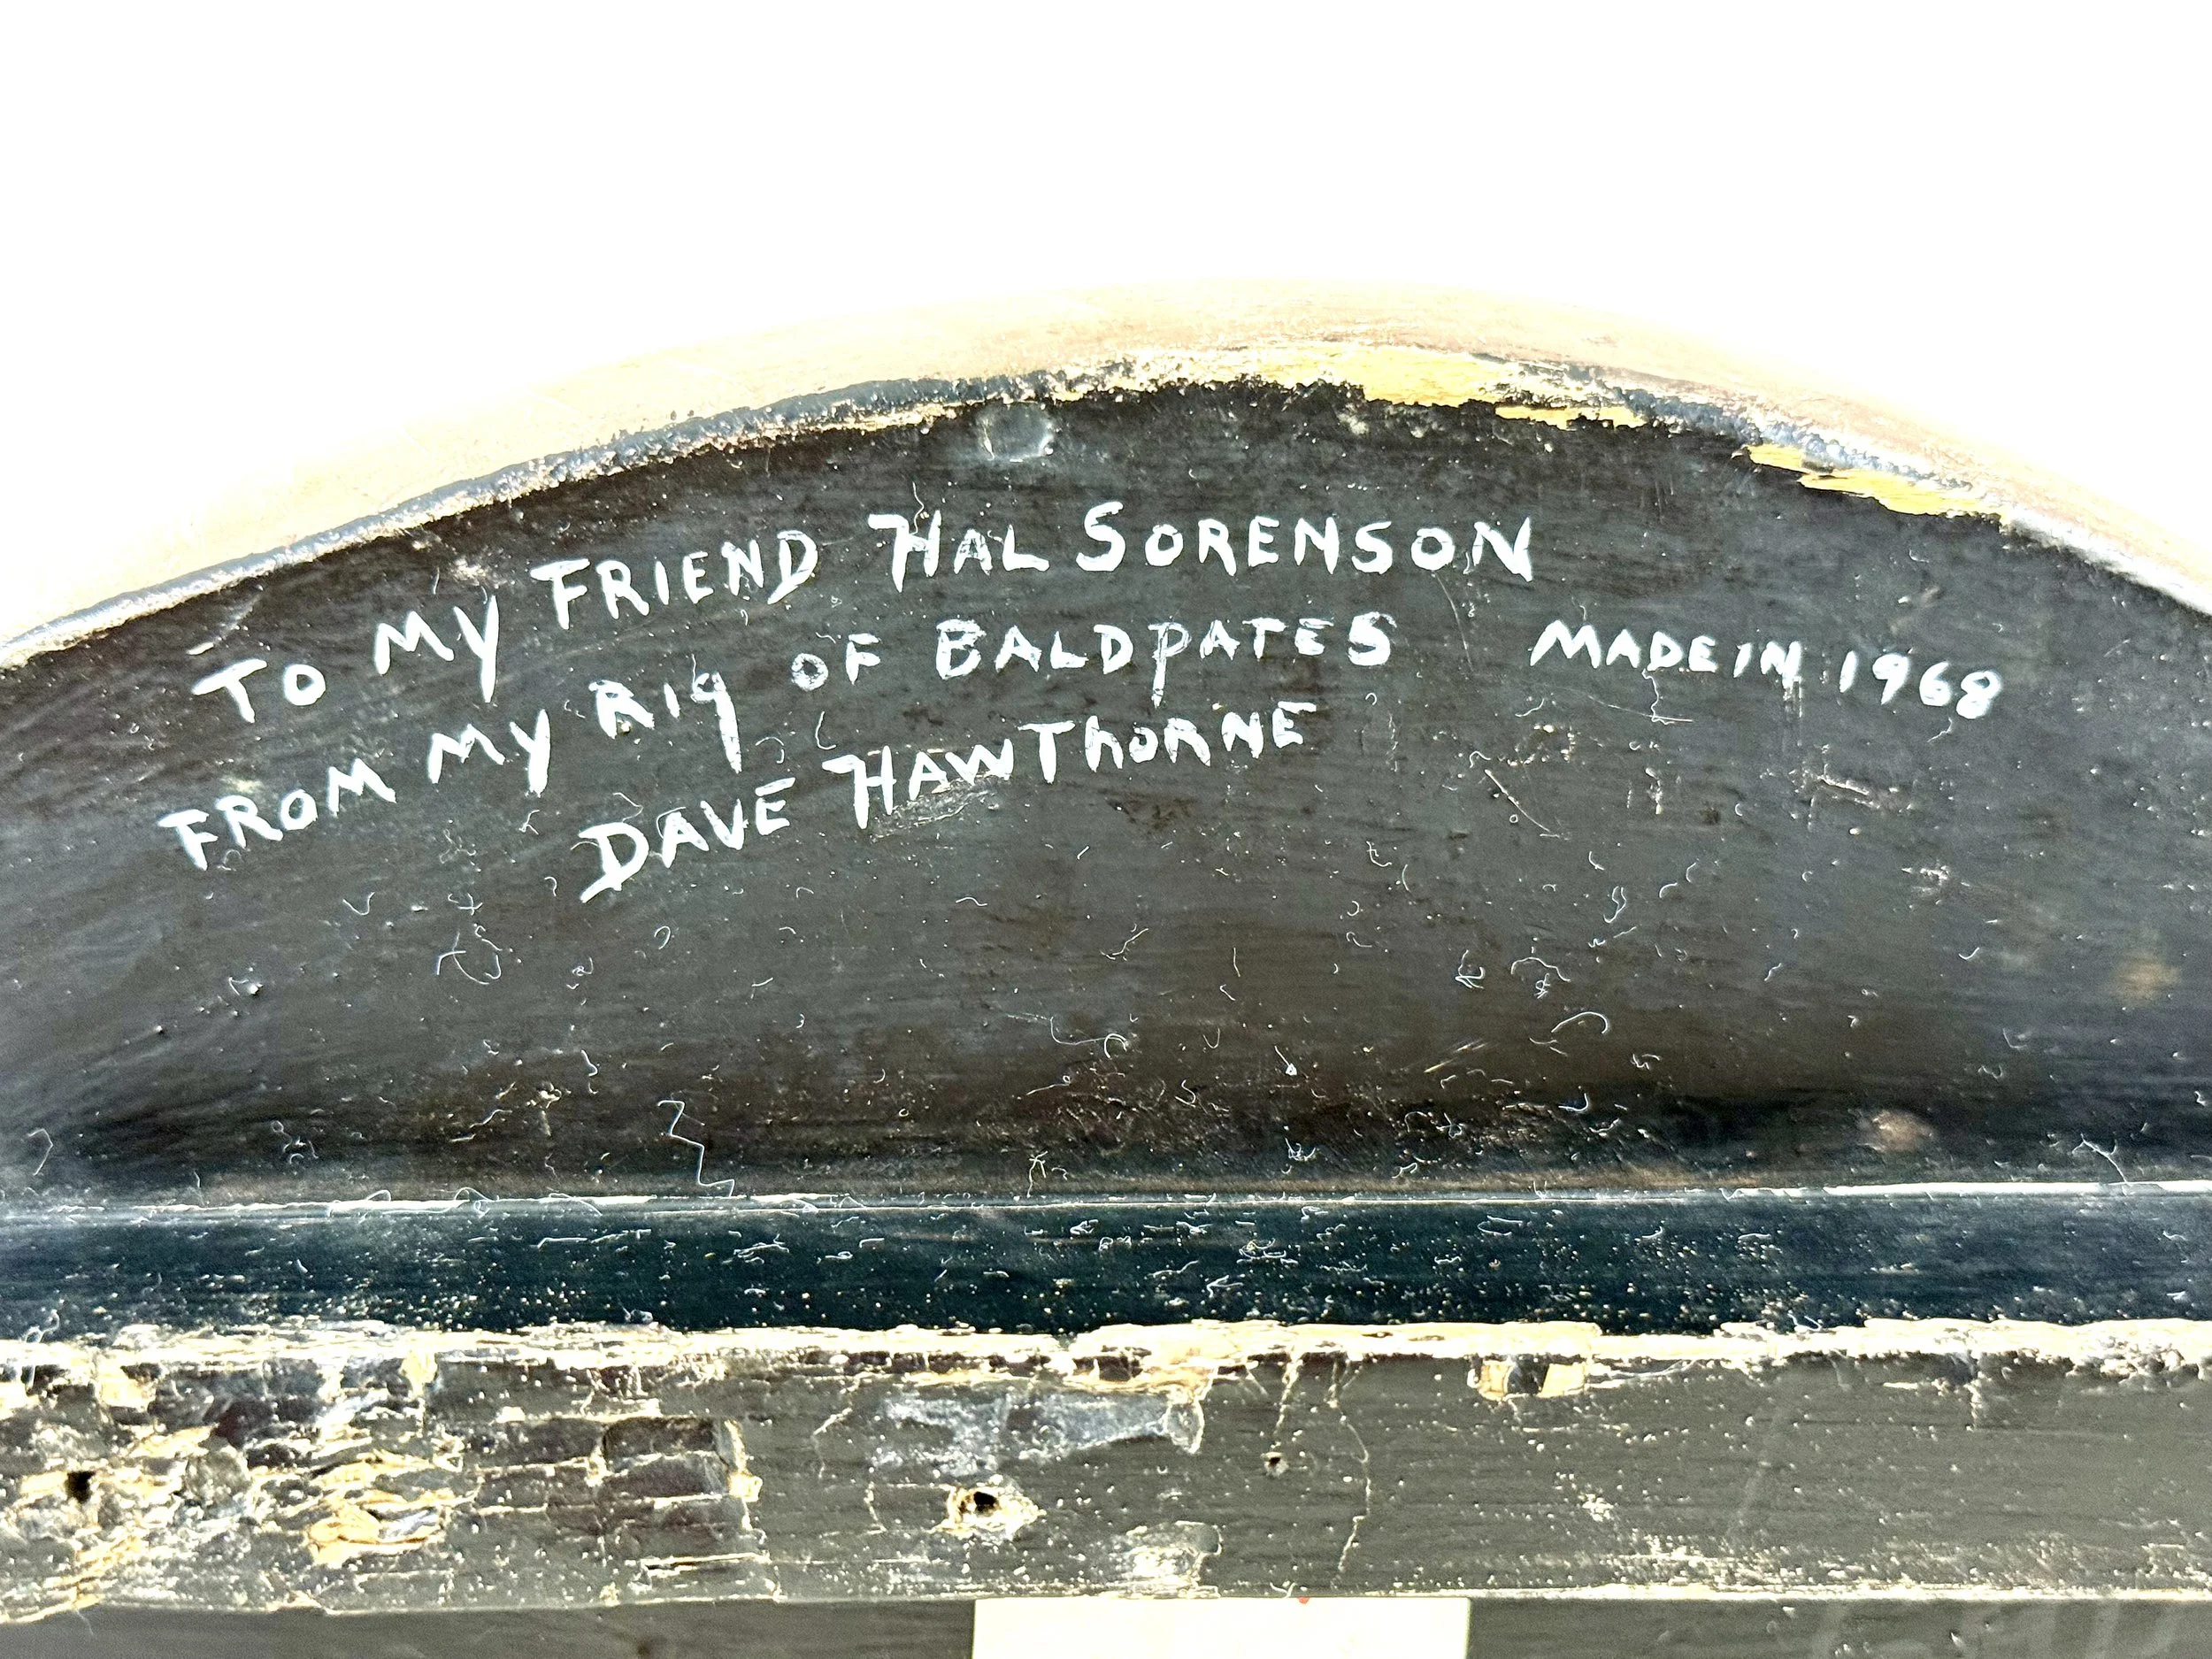 TO MY FRIEND HAL SORENSON
FROM MY RIG OF BALDPATES
MADE IN 1968
DAVE HAWTHORNE